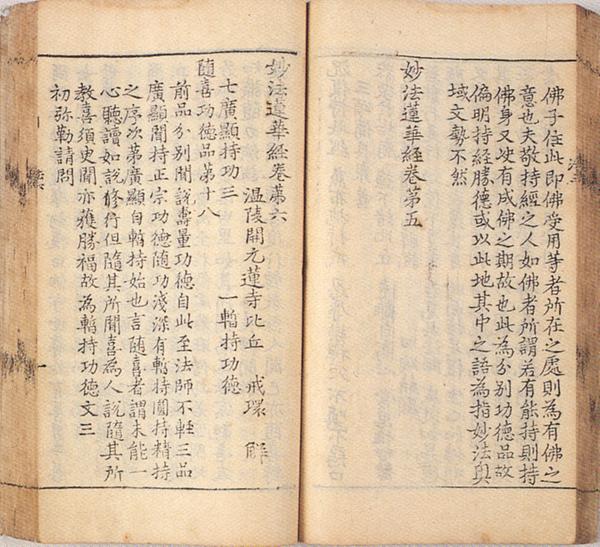 佛子住此即佛受用等者所在之處則為有佛之
意也夫敬持經之人如佛者所謂若有能持則持
佛身又史有成佛之期故也此為分別功德品故
偏明持經勝德或以此地其中之語為指妙法與
域文勢不然
妙法蓮華經卷第五
妙法蓮華經卷第六
温陵開元蓮寺比丘 戒環 解
七廣顯持功三 一暫持功德
随喜功德品第十八
前品分別聞說壽量功德自此至法師不輕三品
廣顯聞持正宗功德随功淺深有暫持圓持精持
之序次第廣顯自暫持始也言随喜者謂未能一
心聽讀如說修行但隨其所聞喜為人說隨其所
教喜須臾聞亦獲勝福故為暫持功德文三
初弥勒請問